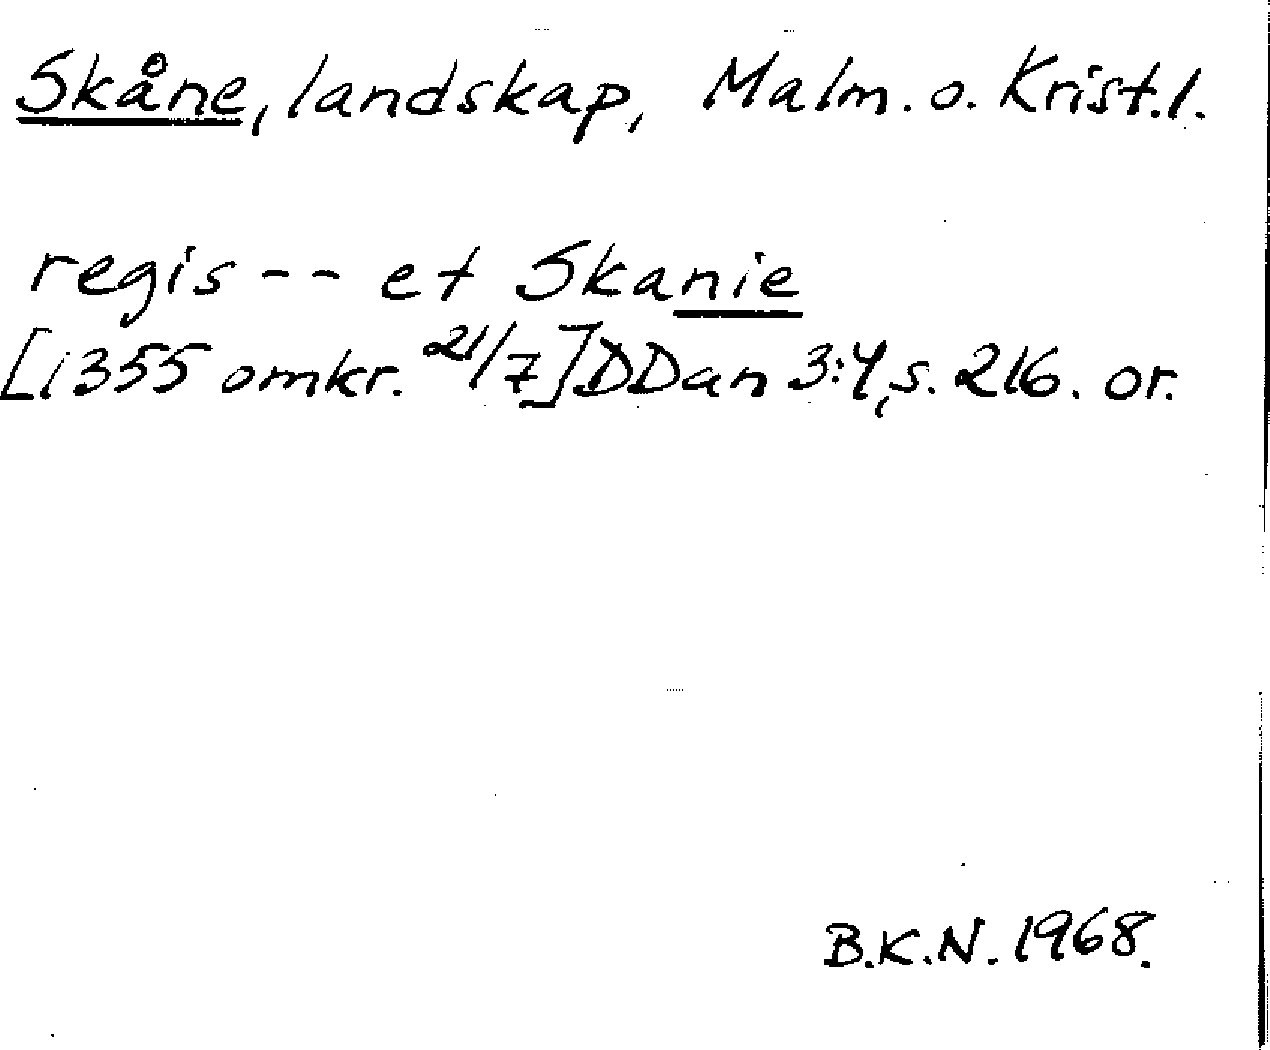 Skåne, landskap, Malm. o. Krist.l.
regis -- et Skanie
[1355 omkr. 21/7] DDan 3:4, s. 216. or.
B.K.N. 1968.